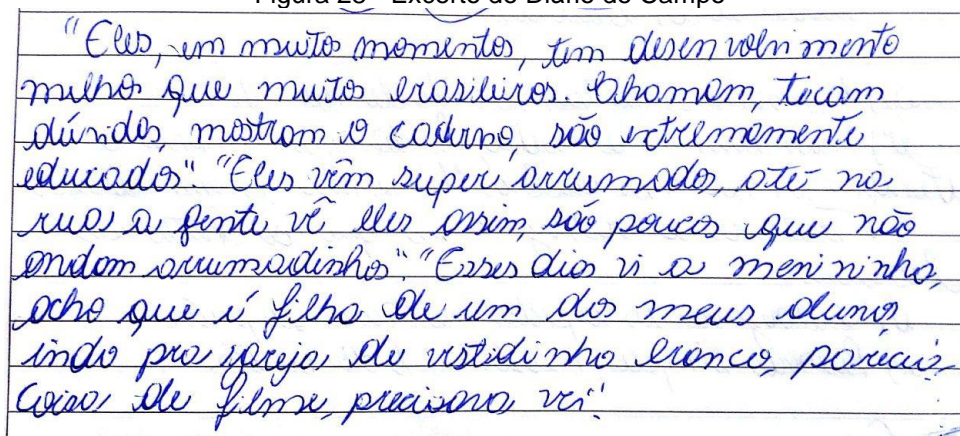 Figura 28 - Excerto do Diário de Campo
"Eles, em muitos momentos, tem desenvolvimento
melhor que muitos brasileiros. Chamam, tiram
dúvidas, mostram o caderno, são extremamente
educados". "Eles vêm super arrumados, até na
rua a gente vê eles assim, são poucos que não
andam arrumadinhos". "Esses dias vi a menininha,
acho que é filha de um dos meus alunos
indo pra igreja, de vestidinho branco, parecia
coisa de filme, precisava ver".